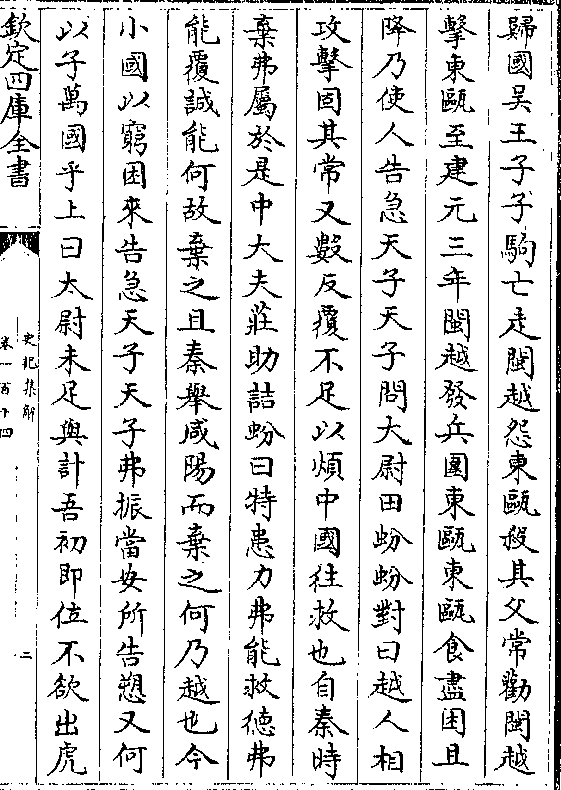 歸國吴王子子駒亡走閩越怨東甌殺其父常勸閩越
擊東甌至建元三年閩越發兵圍東甌東甌食盡困且
降乃使人告急天子天子問太尉田蚡蚡對曰越人相
攻擊固其常又數反覆不足以煩中國往救也自秦時
棄弗屬於是中大夫莊助詰蚡曰特患力弗能救德弗
能覆誠能何故棄之且秦舉咸陽而棄之何乃越也今
小國以窮困來告急天子天子弗振當安所告愬又何
以子萬國乎上曰太尉未足與計吾初即位不欲出虎
欽定四庫全書
史記集解
卷一百十四
二